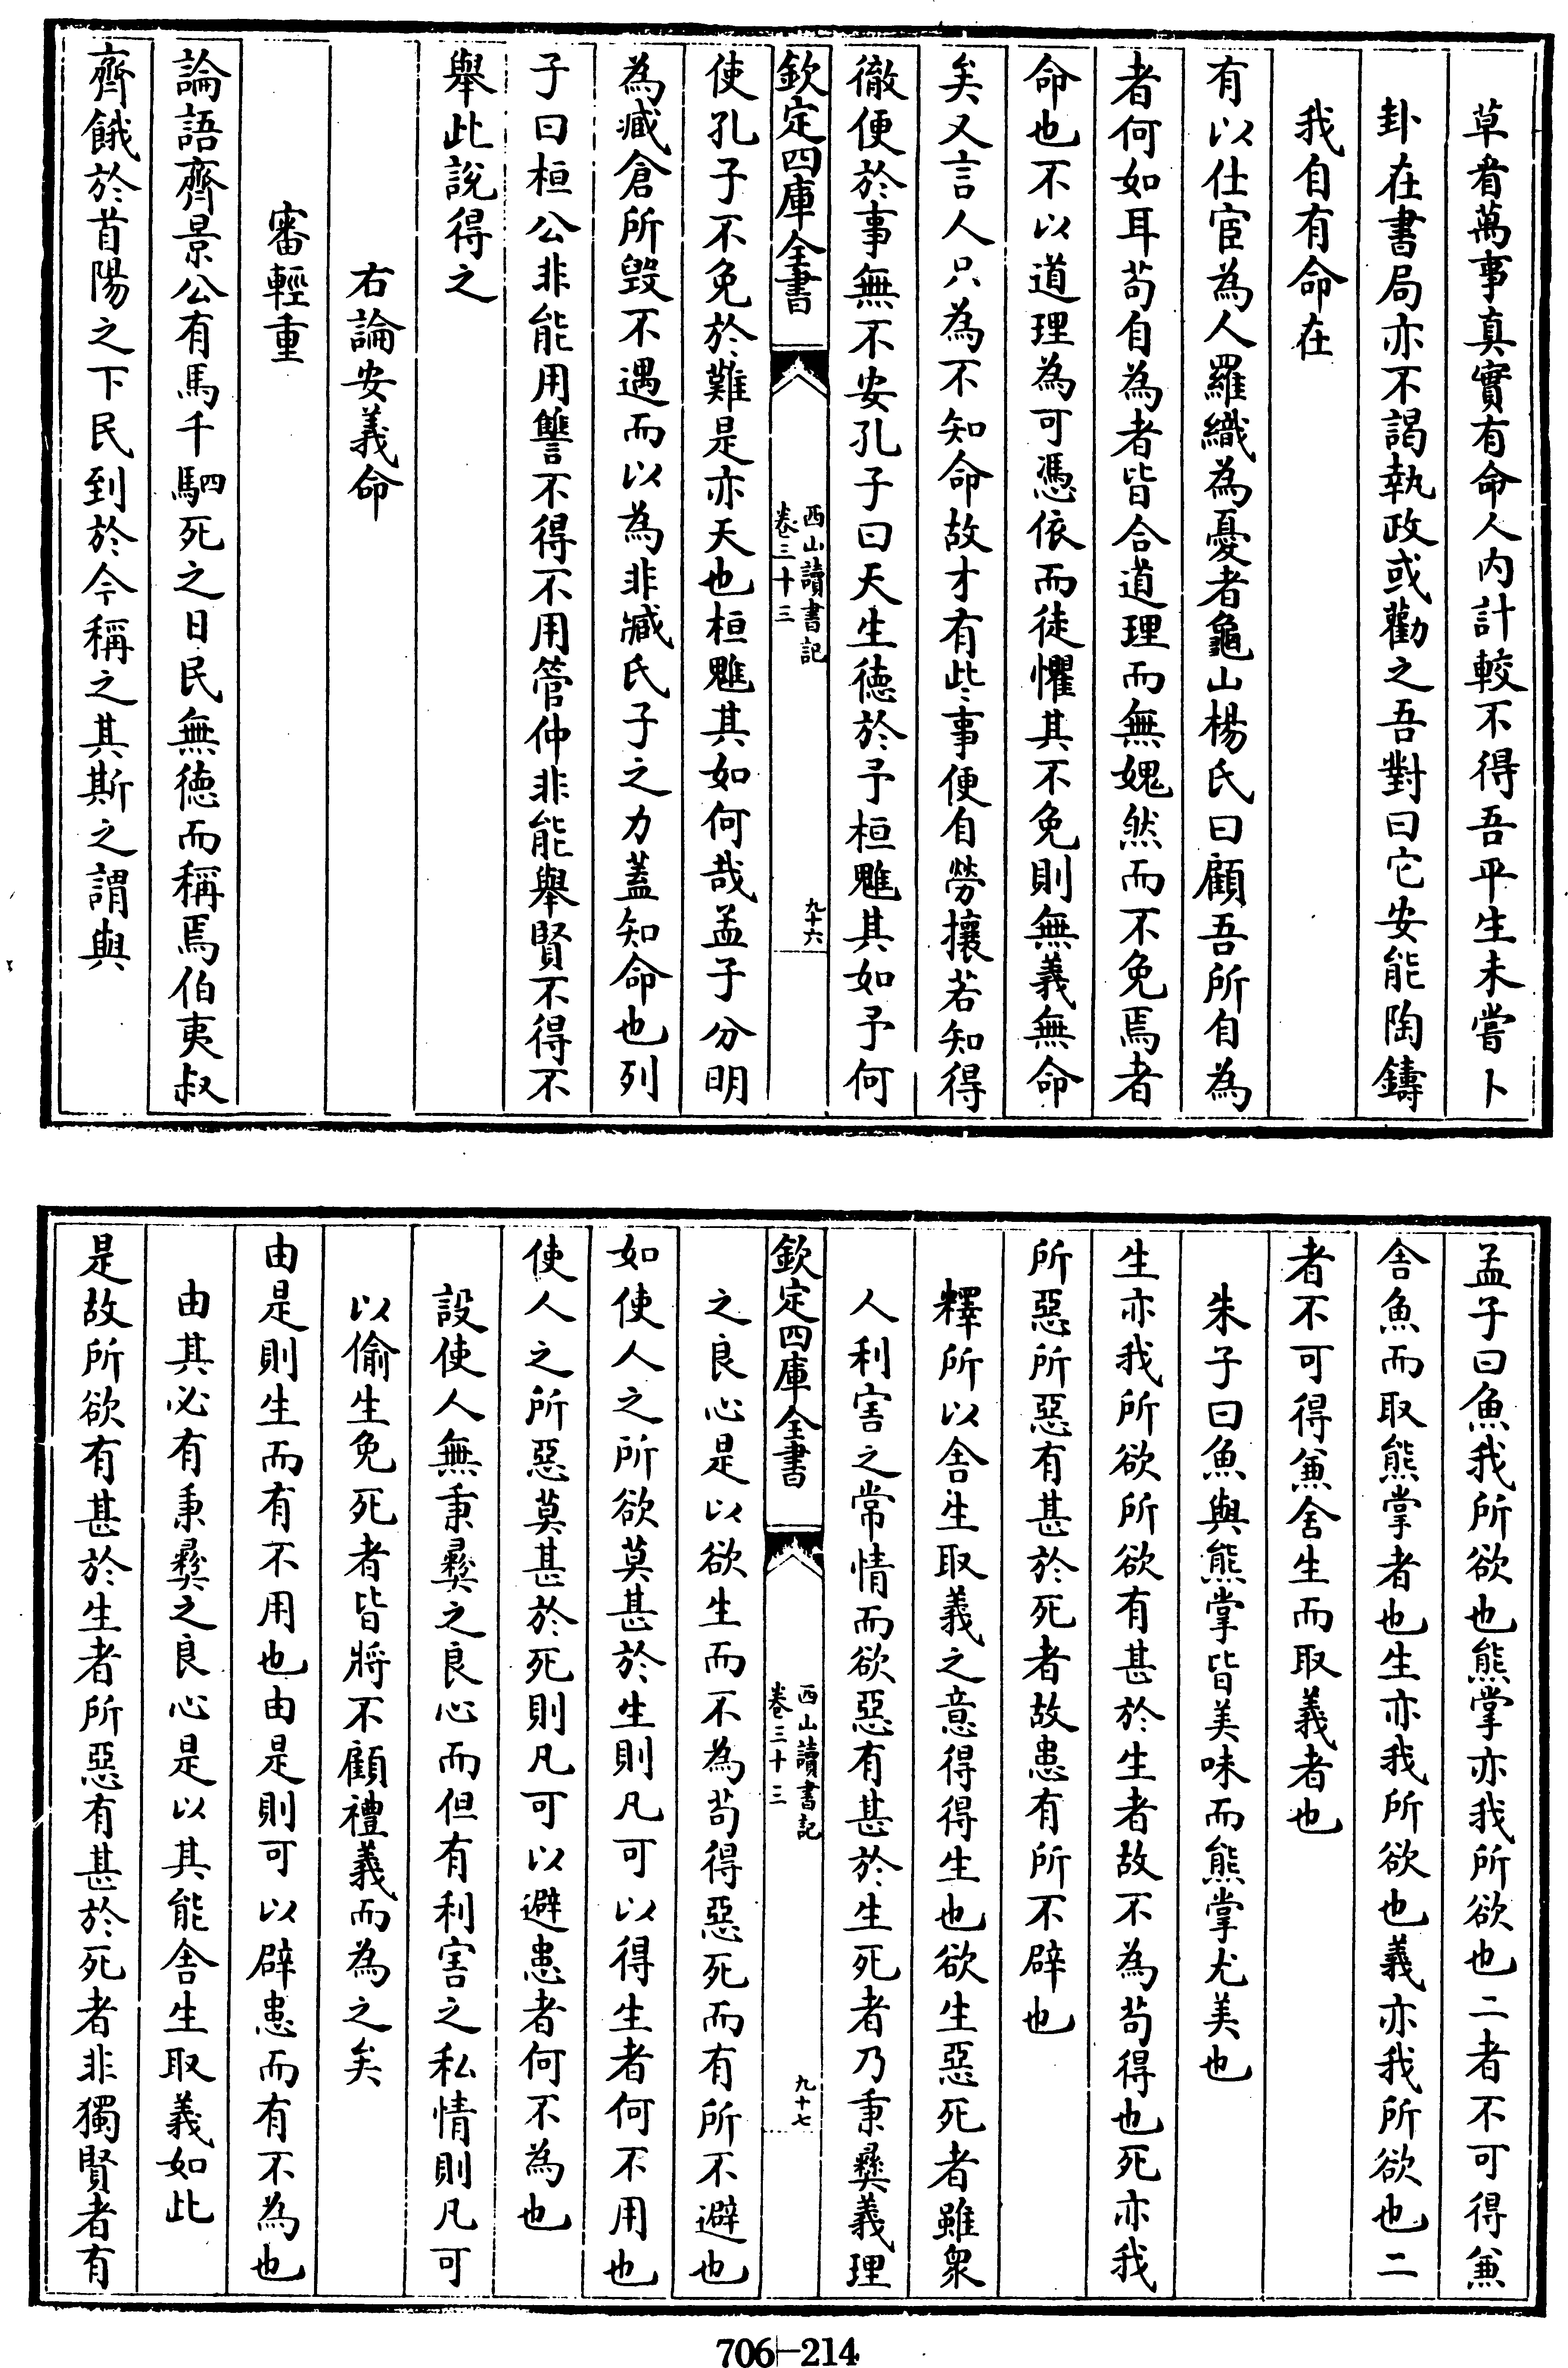 草者萬事真實有命人内計較不得吾平生未嘗卜
卦在書局亦不謁執政或勸之吾對曰它安能陶鑄
我自有命在
有以仕宦為人羅織為憂者龜山楊氏曰顧吾所自為
者何如耳茍自為者皆合道理而無媿然而不免焉者
命也不以道理為可憑依而徒懼其不免則無義無命
矣又言人只為不知命故才有些事便自勞攘若知得
徹便於事無不安孔子曰天生徳於予桓魋其如予何
欽定四庫全書
西山讀書記
卷三十三
九十六
使孔子不免於難是亦天也桓魋其如何哉孟子分明
為臧倉所毁不遇而以為非臧氏子之力蓋知命也列
子曰桓公非能用讐不得不用管仲非能舉賢不得不
舉此說得之
右論安義命
審輕重
論語齊景公有馬千駟死之日民無徳而稱焉伯夷叔
齊餓於首陽之下民到於今稱之其斯之謂與
孟子曰魚我所欲也熊掌亦我所欲也二者不可得兼
舎魚而取熊掌者也生亦我所欲也義亦我所欲也二
者不可得兼舍生而取義者也
朱子曰魚與熊掌皆美味而熊掌尤美也
生亦我所欲所欲有甚於生者故不為茍得也死亦我
所惡所惡有甚於死者故患有所不辟也
釋所以舍生取義之意得得生也欲生惡死者雖衆
人利害之常情而欲惡有甚於生死者乃秉彞義理
欽定四庫全書
西山讀書記
卷三十三
九十七
之良心是以欲生而不為茍得惡死而有所不避也
如使人之所欲莫甚於生則凡可以得生者何不用也
使人之所惡莫甚於死則凡可以避患者何不為也
設使人無秉彞之良心而但有利害之私情則凡可
以偷生免死者皆將不顧禮義而為之矣
由是則生而有不用也由是則可以辟患而有不為也
由其必有秉彞之良心是以其能舍生取義如此
是故所欲有甚於生者所惡有甚於死者非獨賢者有
706-214